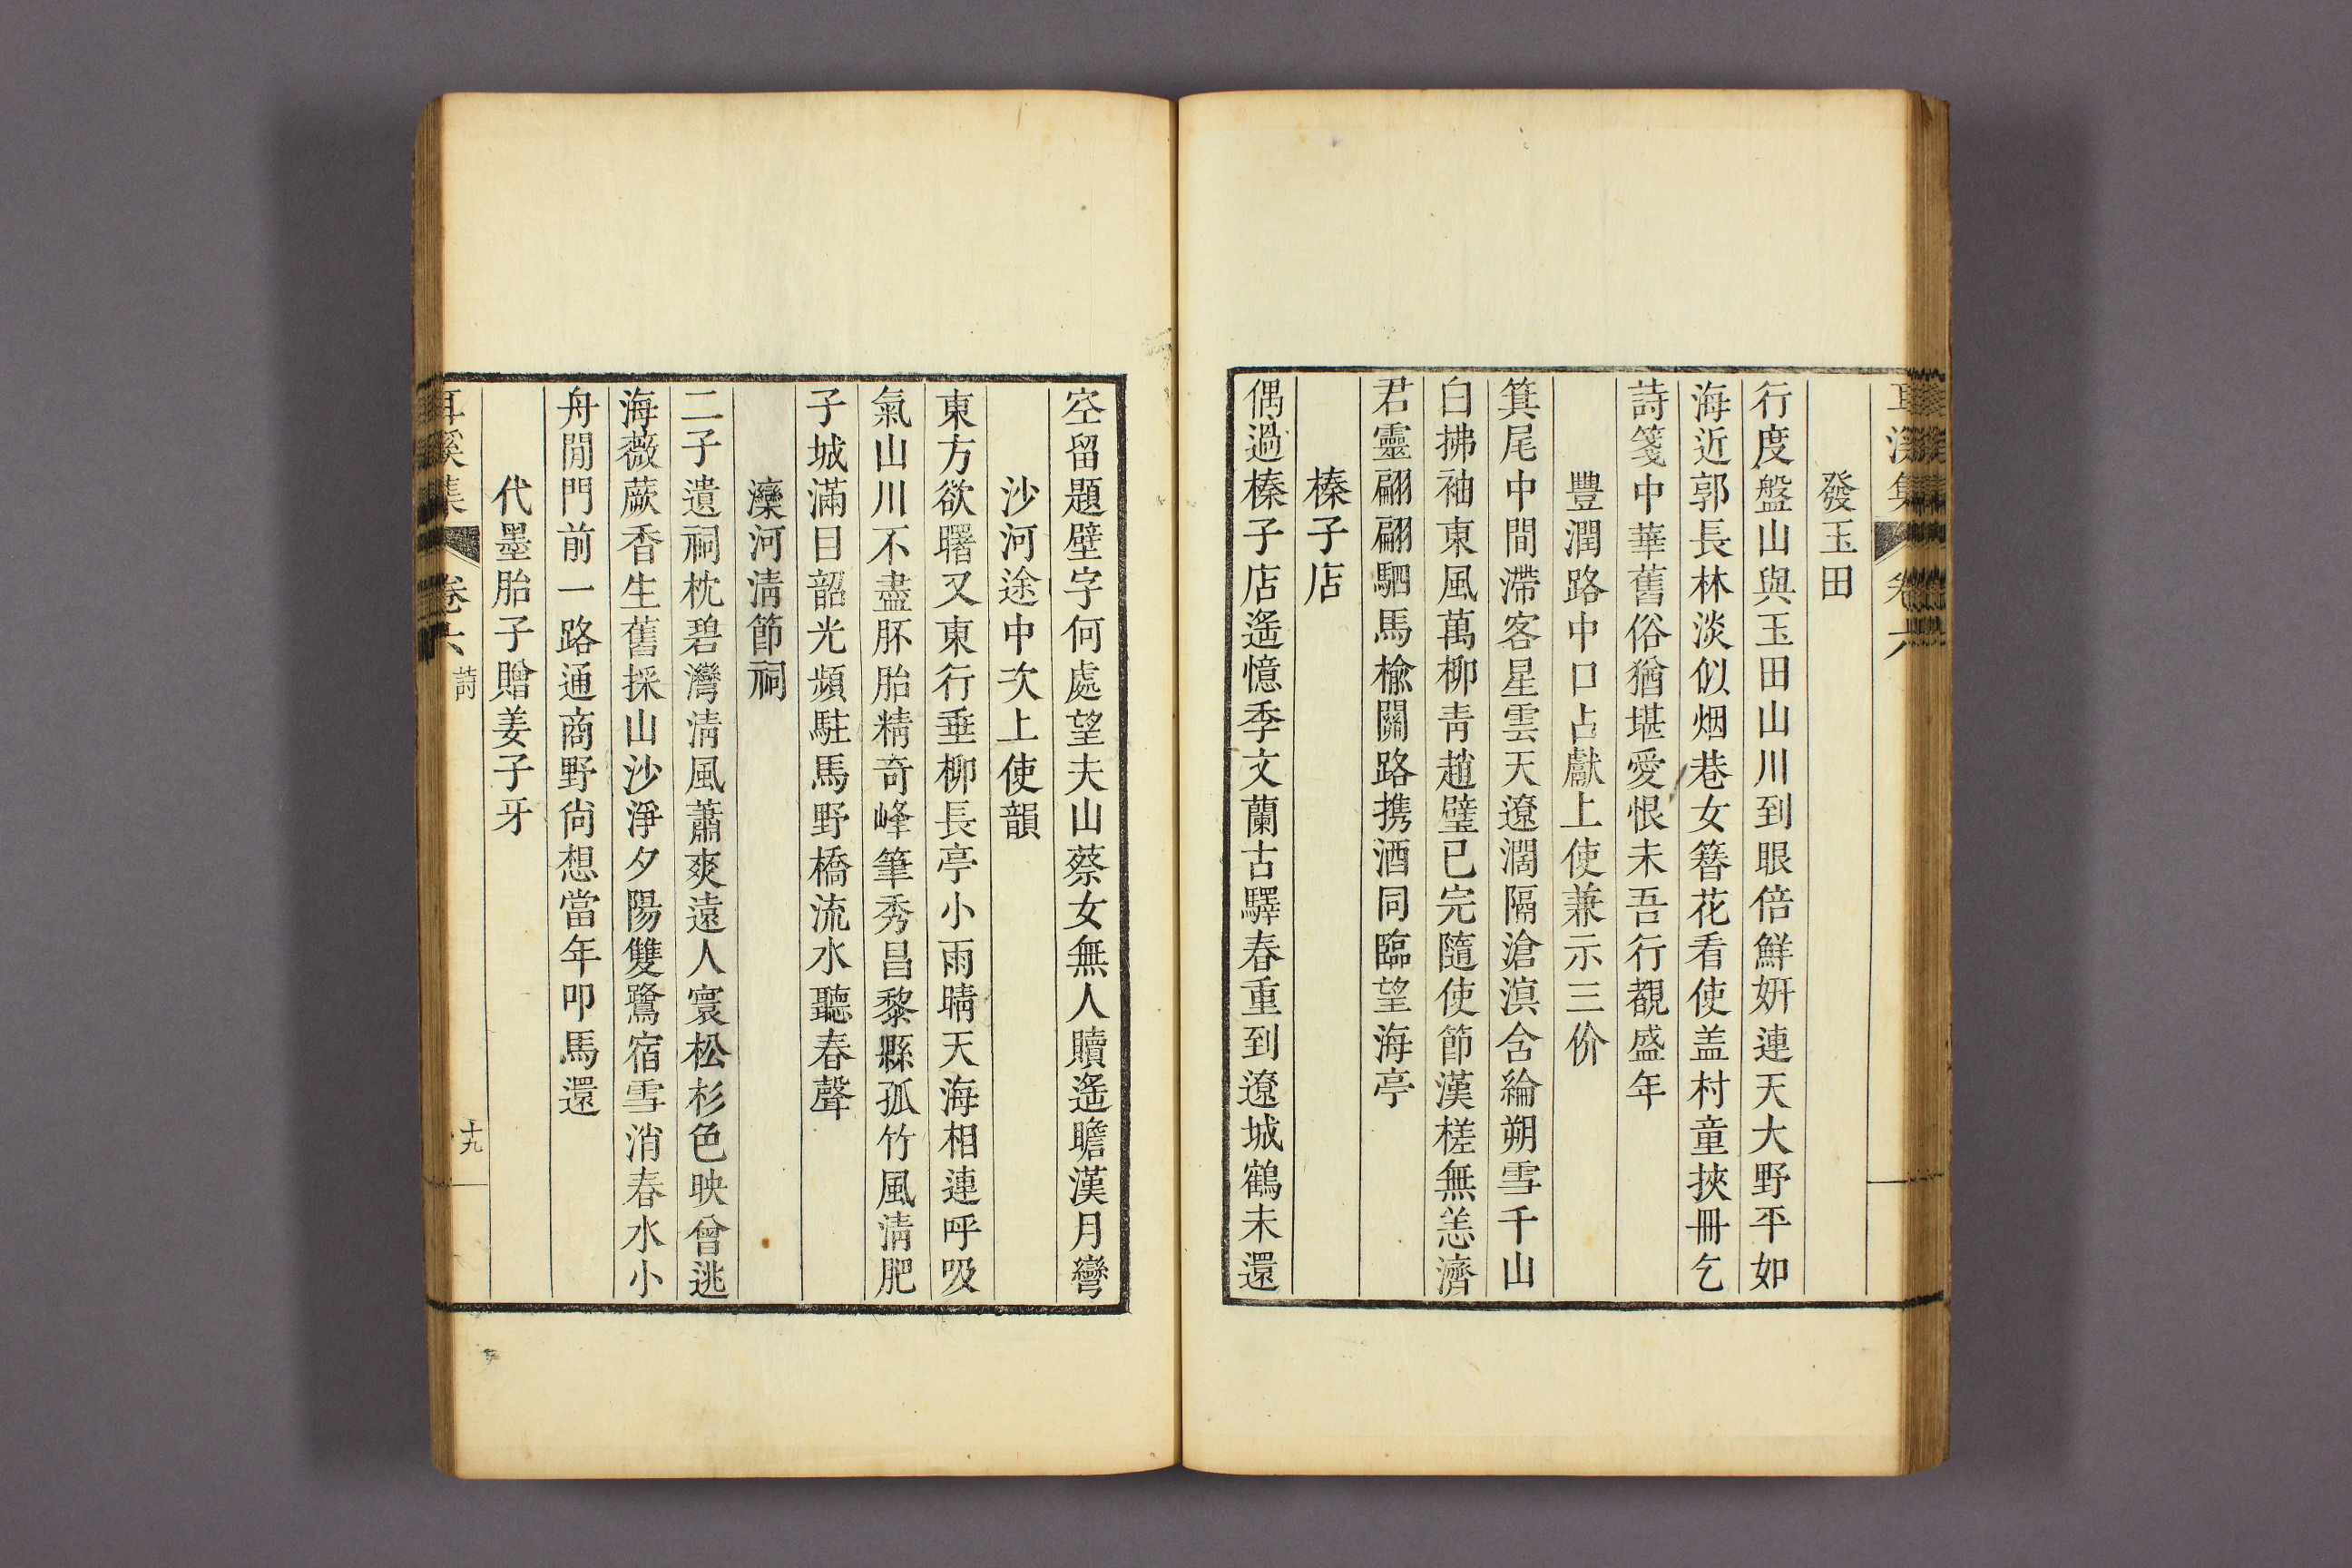 發玉田
行度盤山與玉田山川到眼倍鮮姸連天大野平如
海近郭長林淡似烟巷女簪花看使盖村童挾冊乞
詩箋中華舊俗猶堪愛恨未吾行覩盛年
豐潤路中口占獻上使兼示三价
箕尾中間滯客星雲天遼濶隔滄溟含綸朔雪千山
白拂袖東風萬柳靑趙璧已完隨使節漢槎無恙濟
君靈翩翩駟馬楡關路携酒同臨望海亭
榛子店
偶過榛子店遙憶季文蘭古驛春重到遼城鶴未還
空留題壁字何處望夫山蔡女無人贖遙瞻漢月彎
沙河途中次上使韻
東方欲曙又東行垂柳長亭小雨晴天海相連呼吸
氣山川不盡胚胎精奇峰筆秀昌黎縣孤竹風淸肥
子城滿目韶光頻駐馬野橋流水聽春聲
灤河淸節祠
二子遺祠枕碧灣淸風蕭爽遠人寰松杉色映曾逃
海薇蕨香生舊採山沙淨夕陽雙鷺宿雪消春水小
舟閒門前一路通商野尙想當年叩馬還
代墨胎子贈姜子牙
耳溪集 卷六 詩 十九